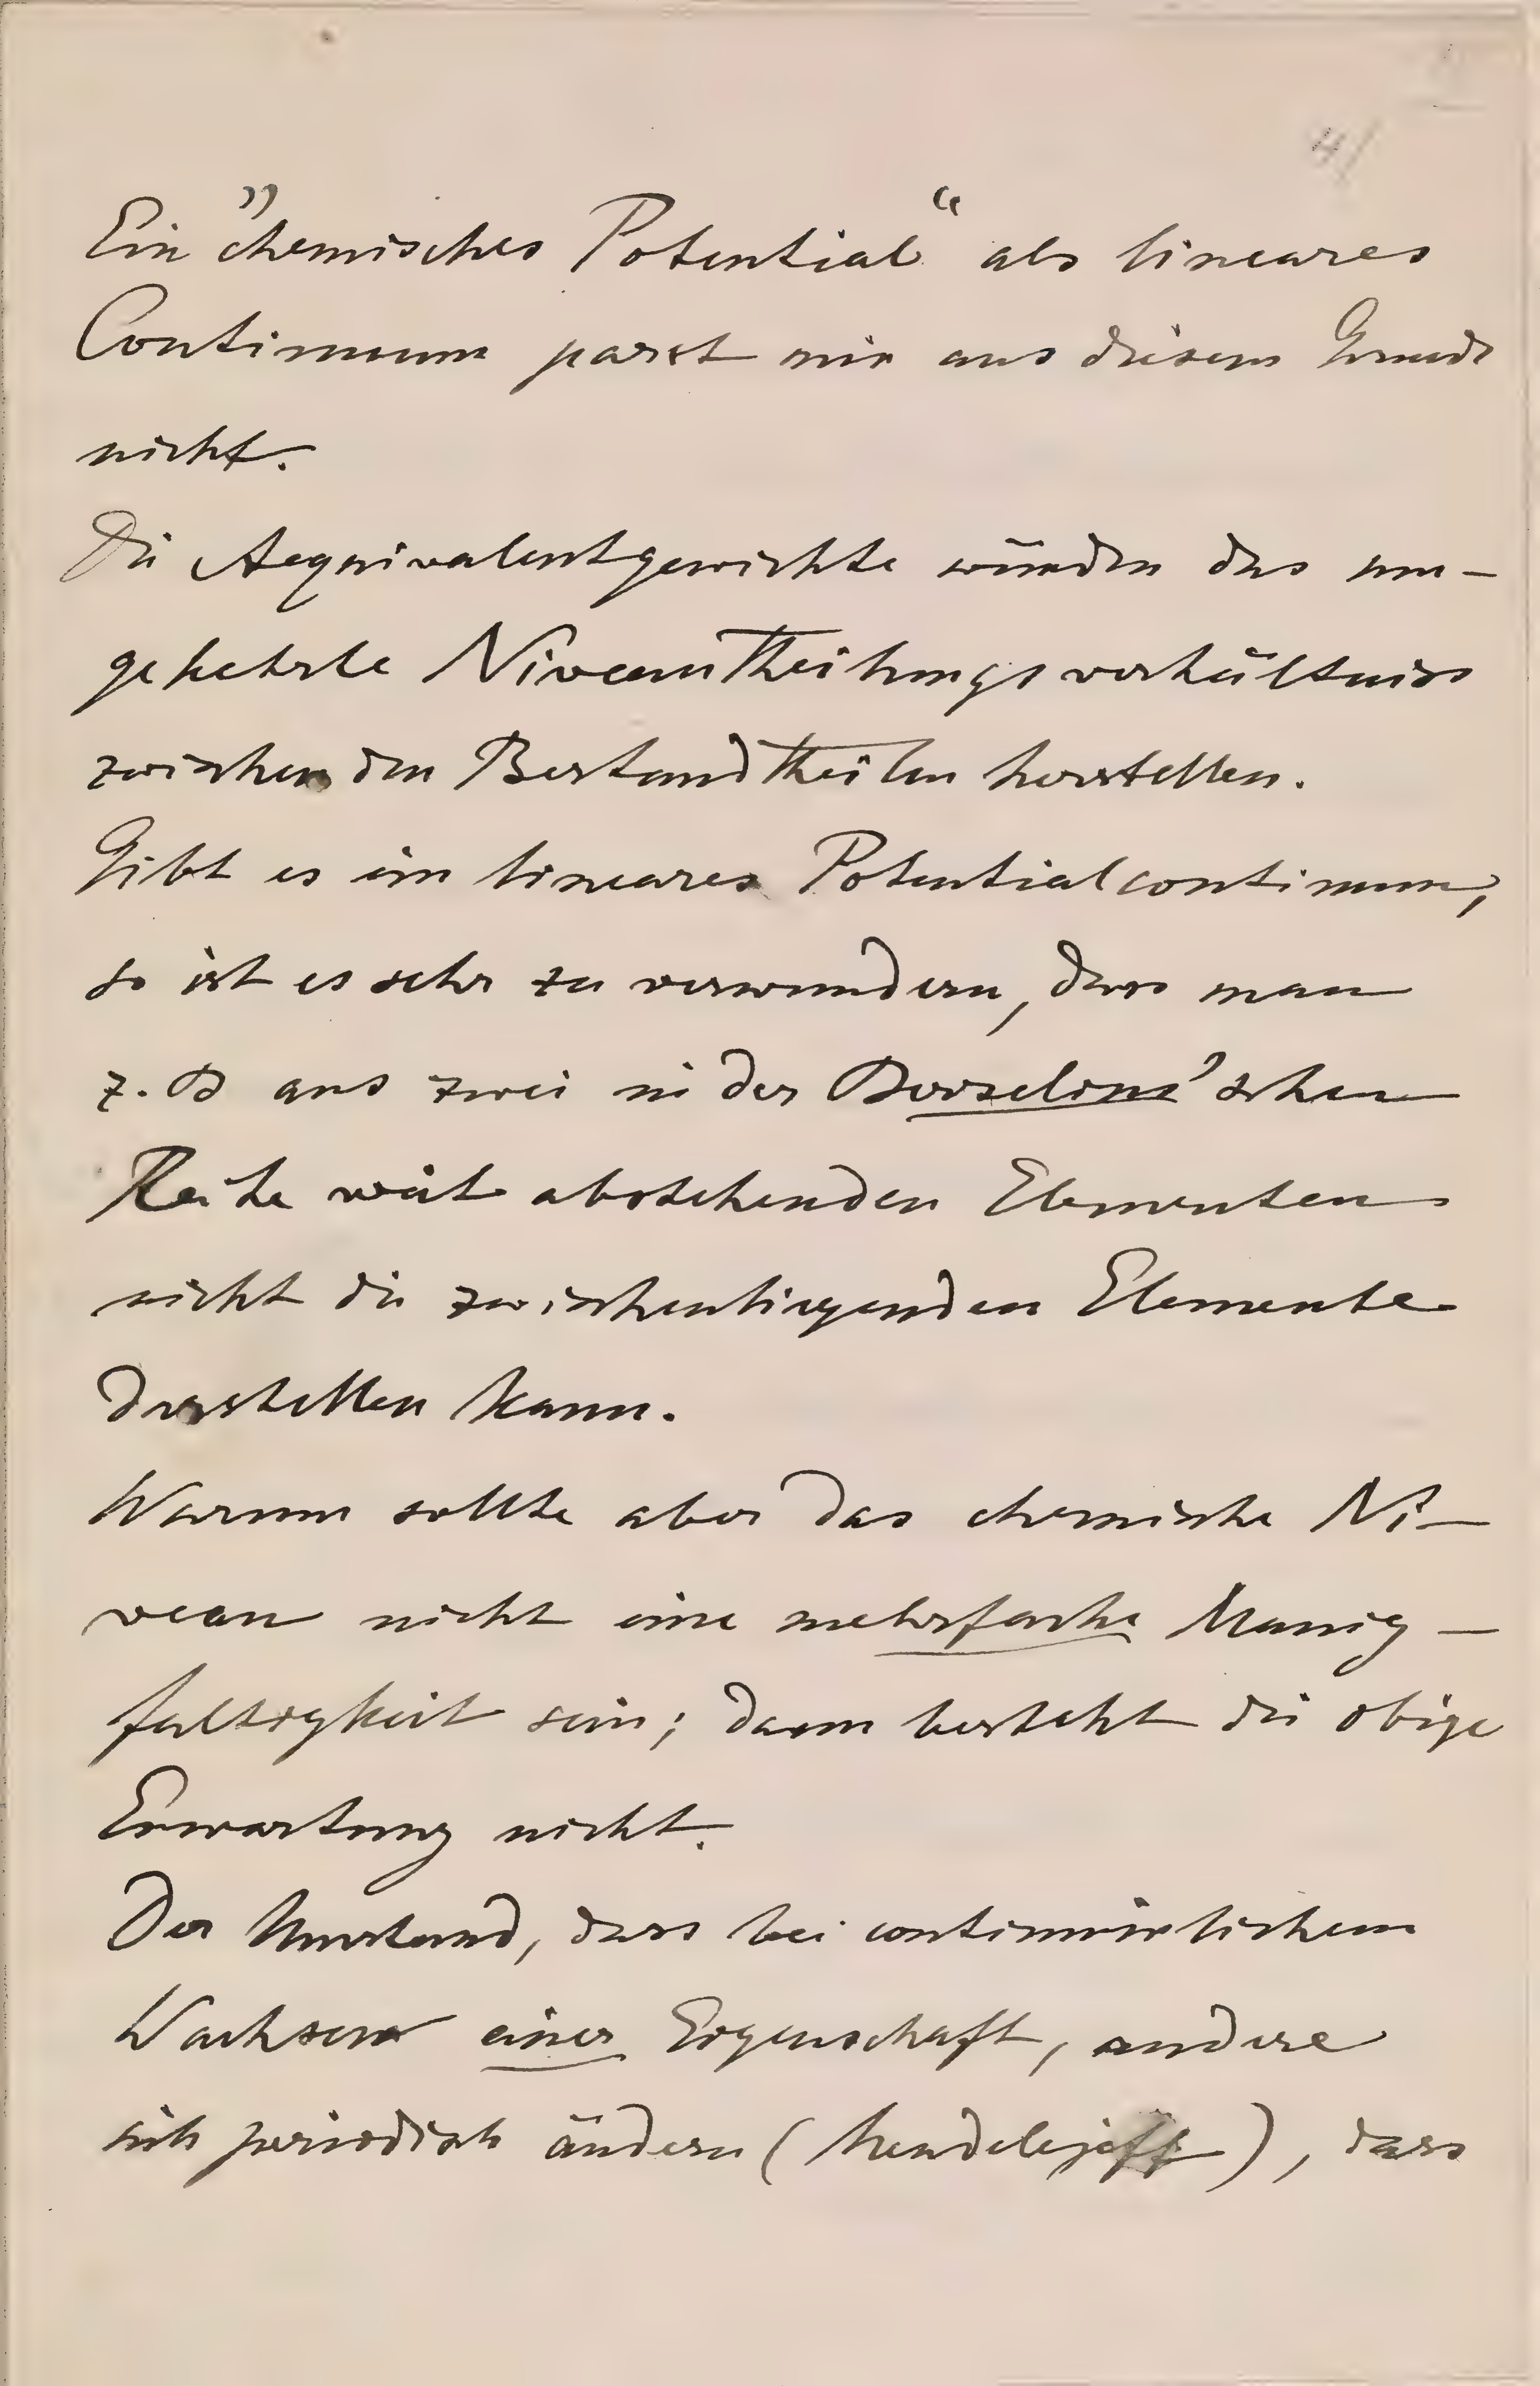 4/
Ein „chemisches Potential“ als lineares
Continuum passt mir aus diesem Grunde
nicht.
Die Aequivalentgewichte würden das um-
gekehrte Niveautheilungsverhältniss
zwischen den Bestandtheilen herstellen.
Gibt es ein lineares Potentialcontinuum,
so ist es sehr zu verwundern, dass man
z. B aus zwei in der Berzelius'schen
Reihe weit abstehenden Elementen
nicht die zwischenliegenden Elemente
darstellen kann.
Warum sollte aber das chemische Ni-
veau nicht eine mehrfache Manig-
faltigkeit sein; dann besteht die obige
Erwartung nicht.
Der Umstand, dass bei continuirlichem
Wachsen einer Eigenschaft, andere
sich periodisch ändern (Mendelejeff), dass